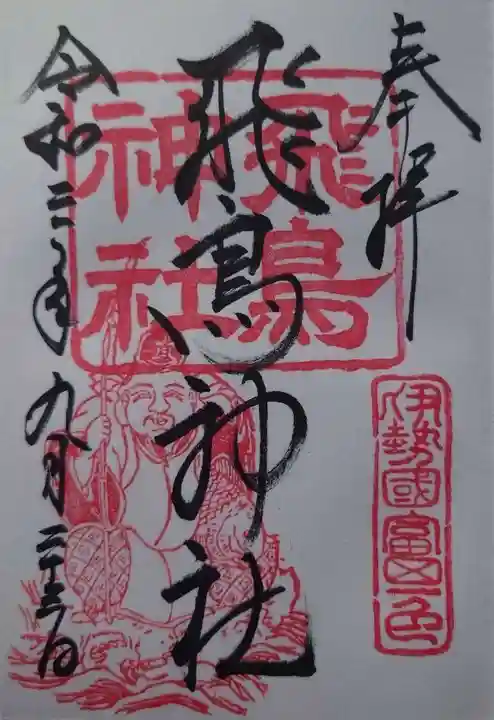 奉拝
伊勢國富一色
飛鳥神社
飛鳥
神社
令和二年九月二十三日